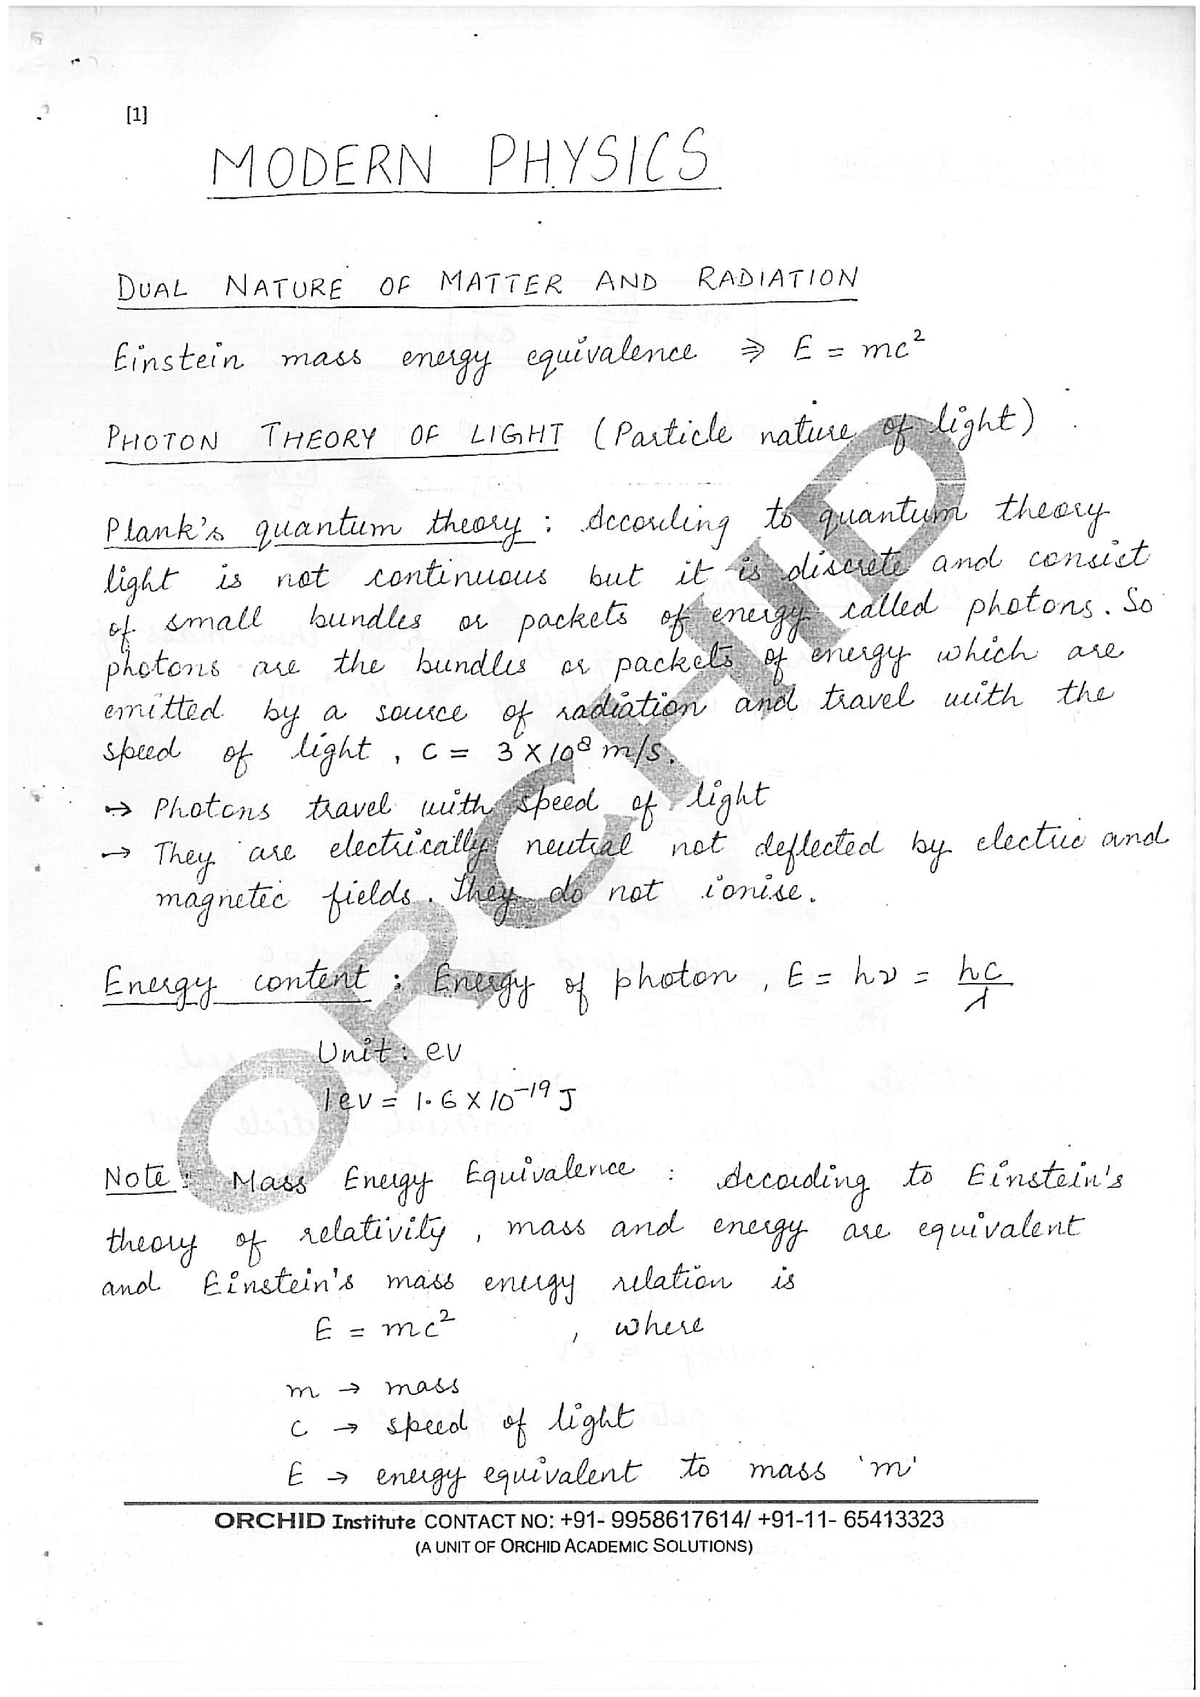 [1]
MODERN PHYSICS
DUAL NATURE OF MATTER AND RADIATION
Einstein mass energy equivalence ⇒ E = mc²
PHOTON THEORY OF LIGHT (Particle nature of light)
Plank's quantum theory : According to quantum theory
light is not continuous but it is discrete and consist
of small bundles or packets of energy called photons. So
photons are the bundles or packets of energy which are
emitted by a source of radiation and travel with the
speed of light, c = 3 X 10⁸ m/s.
→ Photons travel with speed of light
→ They are electrically neutral not deflected by electric and
magnetic fields. They do not ionise.
Energy content : Energy of photon, E = hν = hc/λ
Unit : ev
1ev = 1.6 X 10⁻¹⁹ J
Note : Mass Energy Equivalence : According to Einstein's
theory of relativity, mass and energy are equivalent
and Einstein's mass energy relation is
E = mc² , where
m → mass
c → speed of light
E → energy equivalent to mass 'm'
ORCHID Institute CONTACT NO: +91- 9958617614/ +91-11- 65413323
(A UNIT OF ORCHID ACADEMIC SOLUTIONS)
ORCHID